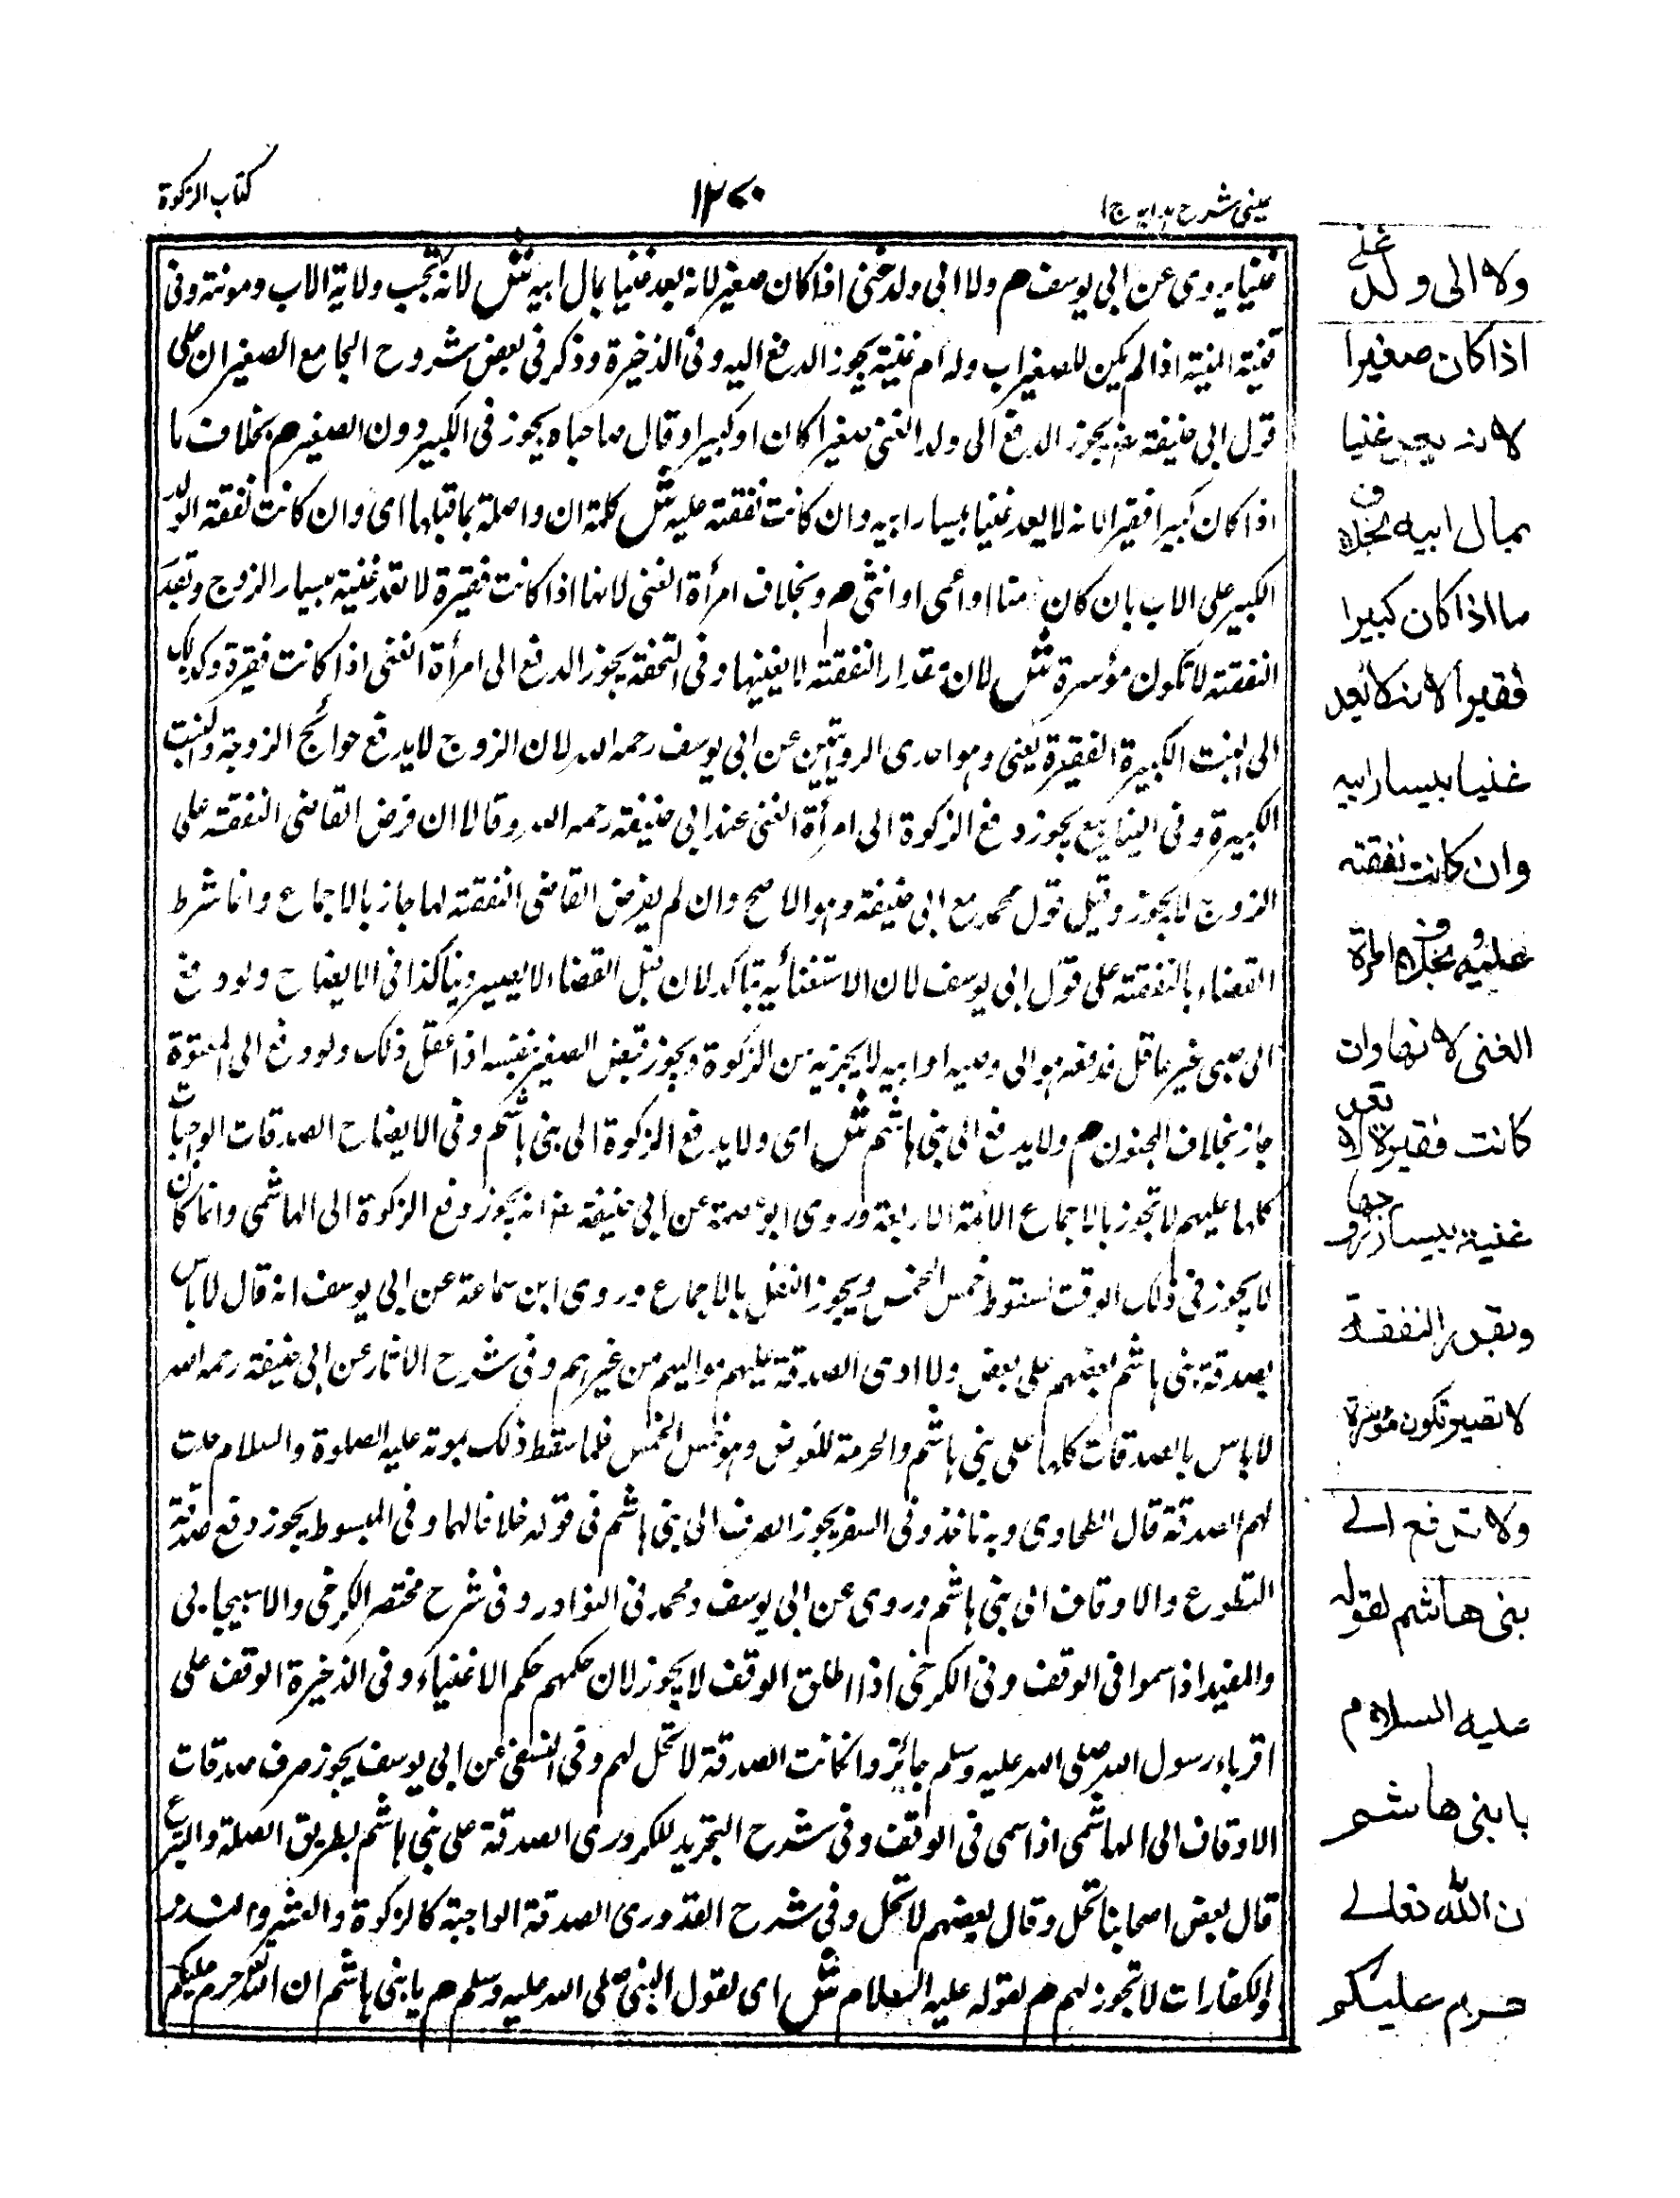 عينى شرح هدايه ج ١
١٢٧٠
كتاب الزكوة
غنيا يروى عن ابى يوسف هم ولا الى ولد غنى اذا كان صغيرا لانه يعد غنيا بمال ابيه ش لانه تجب ولاية الاب ومونته وفى
قنية المنية اذا لم يكن للصغير اب وله ام غنية يجوز الدفع اليه وفى الذخيرة وذكر فى بعض شروح الجامع الصغير ان على
قول ابى حنيفة يجوز الدفع الى ولد الغنى صغيرا كان او كبيرا وقال صاحباه يجوز فى الكبير دون الصغير هم بخلاف ما
اذا كان كبيرا فقيرا لانه لا يعد غنيا بيسار ابيه وان كانت نفقته عليه ش كلمة ان واصلة بما قبلها اى وان كانت نفقة الولد
الكبير على الاب بان كان زمنا او اعمى او انثى هم وبخلاف امرأة الغنى لانها اذا كانت فقيرة لا تعد غنية بيسار الزوج وبقدر
النفقة لا تكون مؤسرة ش لان مقدار النفقة لا يغنيها وفى التحفة يجوز الدفع الى امرأة الغنى اذا كانت فقيرة وكذلك
الى البنت الكبيرة الفقيرة يعنى وهو احدى الروايتين عن ابى يوسف رحمه الله لان الزوج لا يدفع حوائج الزوجة والبنت
الكبيرة وفى الينابيع يجوز دفع الزكوة الى امرأة الغنى عند ابى حنيفة رحمه الله وقالا ان فرض القاضى النفقة على
الزوج لا يجوز وقيل قول محمد مع ابى حنيفة وهو الاصح وان لم يفرض القاضى النفقة لها جاز بالاجماع وانما شرط
القضاء بالنفقة على قول ابى يوسف لان الاستغنائية تتأكد لان قبل القضاء لا يصير دينا كذا فى الايضاح ولو دفع
الى صبى غير عاقل فدفعه هو الى وصيه او ابيه لا يجزيه من الزكوة ويجوز قبض الصغير بنفسه اذا عقل ذلك ولو دفع الى المعتوة
جاز بخلاف المجنون هم ولا يدفع الى بنى هاشم ش اى ولا يدفع الزكوة الى بنى هاشم وفى الايضاح الصدقات الواجبات
كلها عليهم لا تجوز بالاجماع الائمة الاربعة وروى ابو عصمة عن ابى حنيفة انه يجوز دفع الزكوة الى الهاشمى وانما كان
لا يجوز فى ذلك الوقت لسقوط خمس الخمس ويجوز النفل بالاجماع وروى ابن سماعة عن ابى يوسف انه قال لا باس
بصدقة بنى هاشم بعضهم على بعض ولا ارى الصدقة عليهم مواليهم من غيرهم وفى شرح الاثار عن ابى حنيفة رحمه الله
لا باس بالصدقات كلها على بنى هاشم والحرمة للعوض وهو خمس الخمس فلما سقط ذلك بموته عليه الصلوة والسلام حلت
لهم الصدقة قال الطحاوى وبه ناخذ وفى السفر يجوز الصرف الى بنى هاشم فى قوله خلافا لهما وفى المبسوط يجوز دفع صدقة
التطوع والاوقاف الى بنى هاشم وروى عن ابى يوسف ومحمد فى النوادر وفى شرح مختصر الكرخى والاسبيجابى
والمفيد اذا سموا فى الوقف وفى الكرخى اذا اطلق الوقف لا يجوز لان حكمهم حكم الاغنياء وفى الذخيرة الوقف على
اقرباء رسول الله صلى الله عليه وسلم جائز وان كانت الصدقة لا تحل لهم وفى النسفى عن ابى يوسف يجوز صرف صدقات
الاوقاف الى الهاشمى اذا سمى فى الوقف وفى شرح التجريد للكردرى الصدقة على بنى هاشم بطريق الصلة والتبرع
قال بعض اصحابنا تحل وقال بعضهم لا تحل وفى شرح القدورى الصدقة الواجبة كالزكوة والعشر والنذر
والكفارات لا تجوز لهم هم لقوله عليه السلام ش اى لقول النبى صلى الله عليه وسلم هم يا بنى هاشم ان الله حرم عليكم
ولا الى ولد غنى
اذا كان صغيرا
لانه يعد غنيا
بمال ابيه بخلاف
ما اذا كان كبيرا
فقيرا لانه لا يعد
غنيا بيسار ابيه
وان كانت نفقته
عليه وبخلاف امرأة
الغنى لانها وان
كانت فقيرة لا تعد
غنية بيسار زوجها
وبقدر النفقة
لا تصير تكون مؤسرة
ولا تدفع الى
بنى هاشم لقوله
عليه السلام
يا بنى هاشم
ن الله تعالى
حرم عليكم